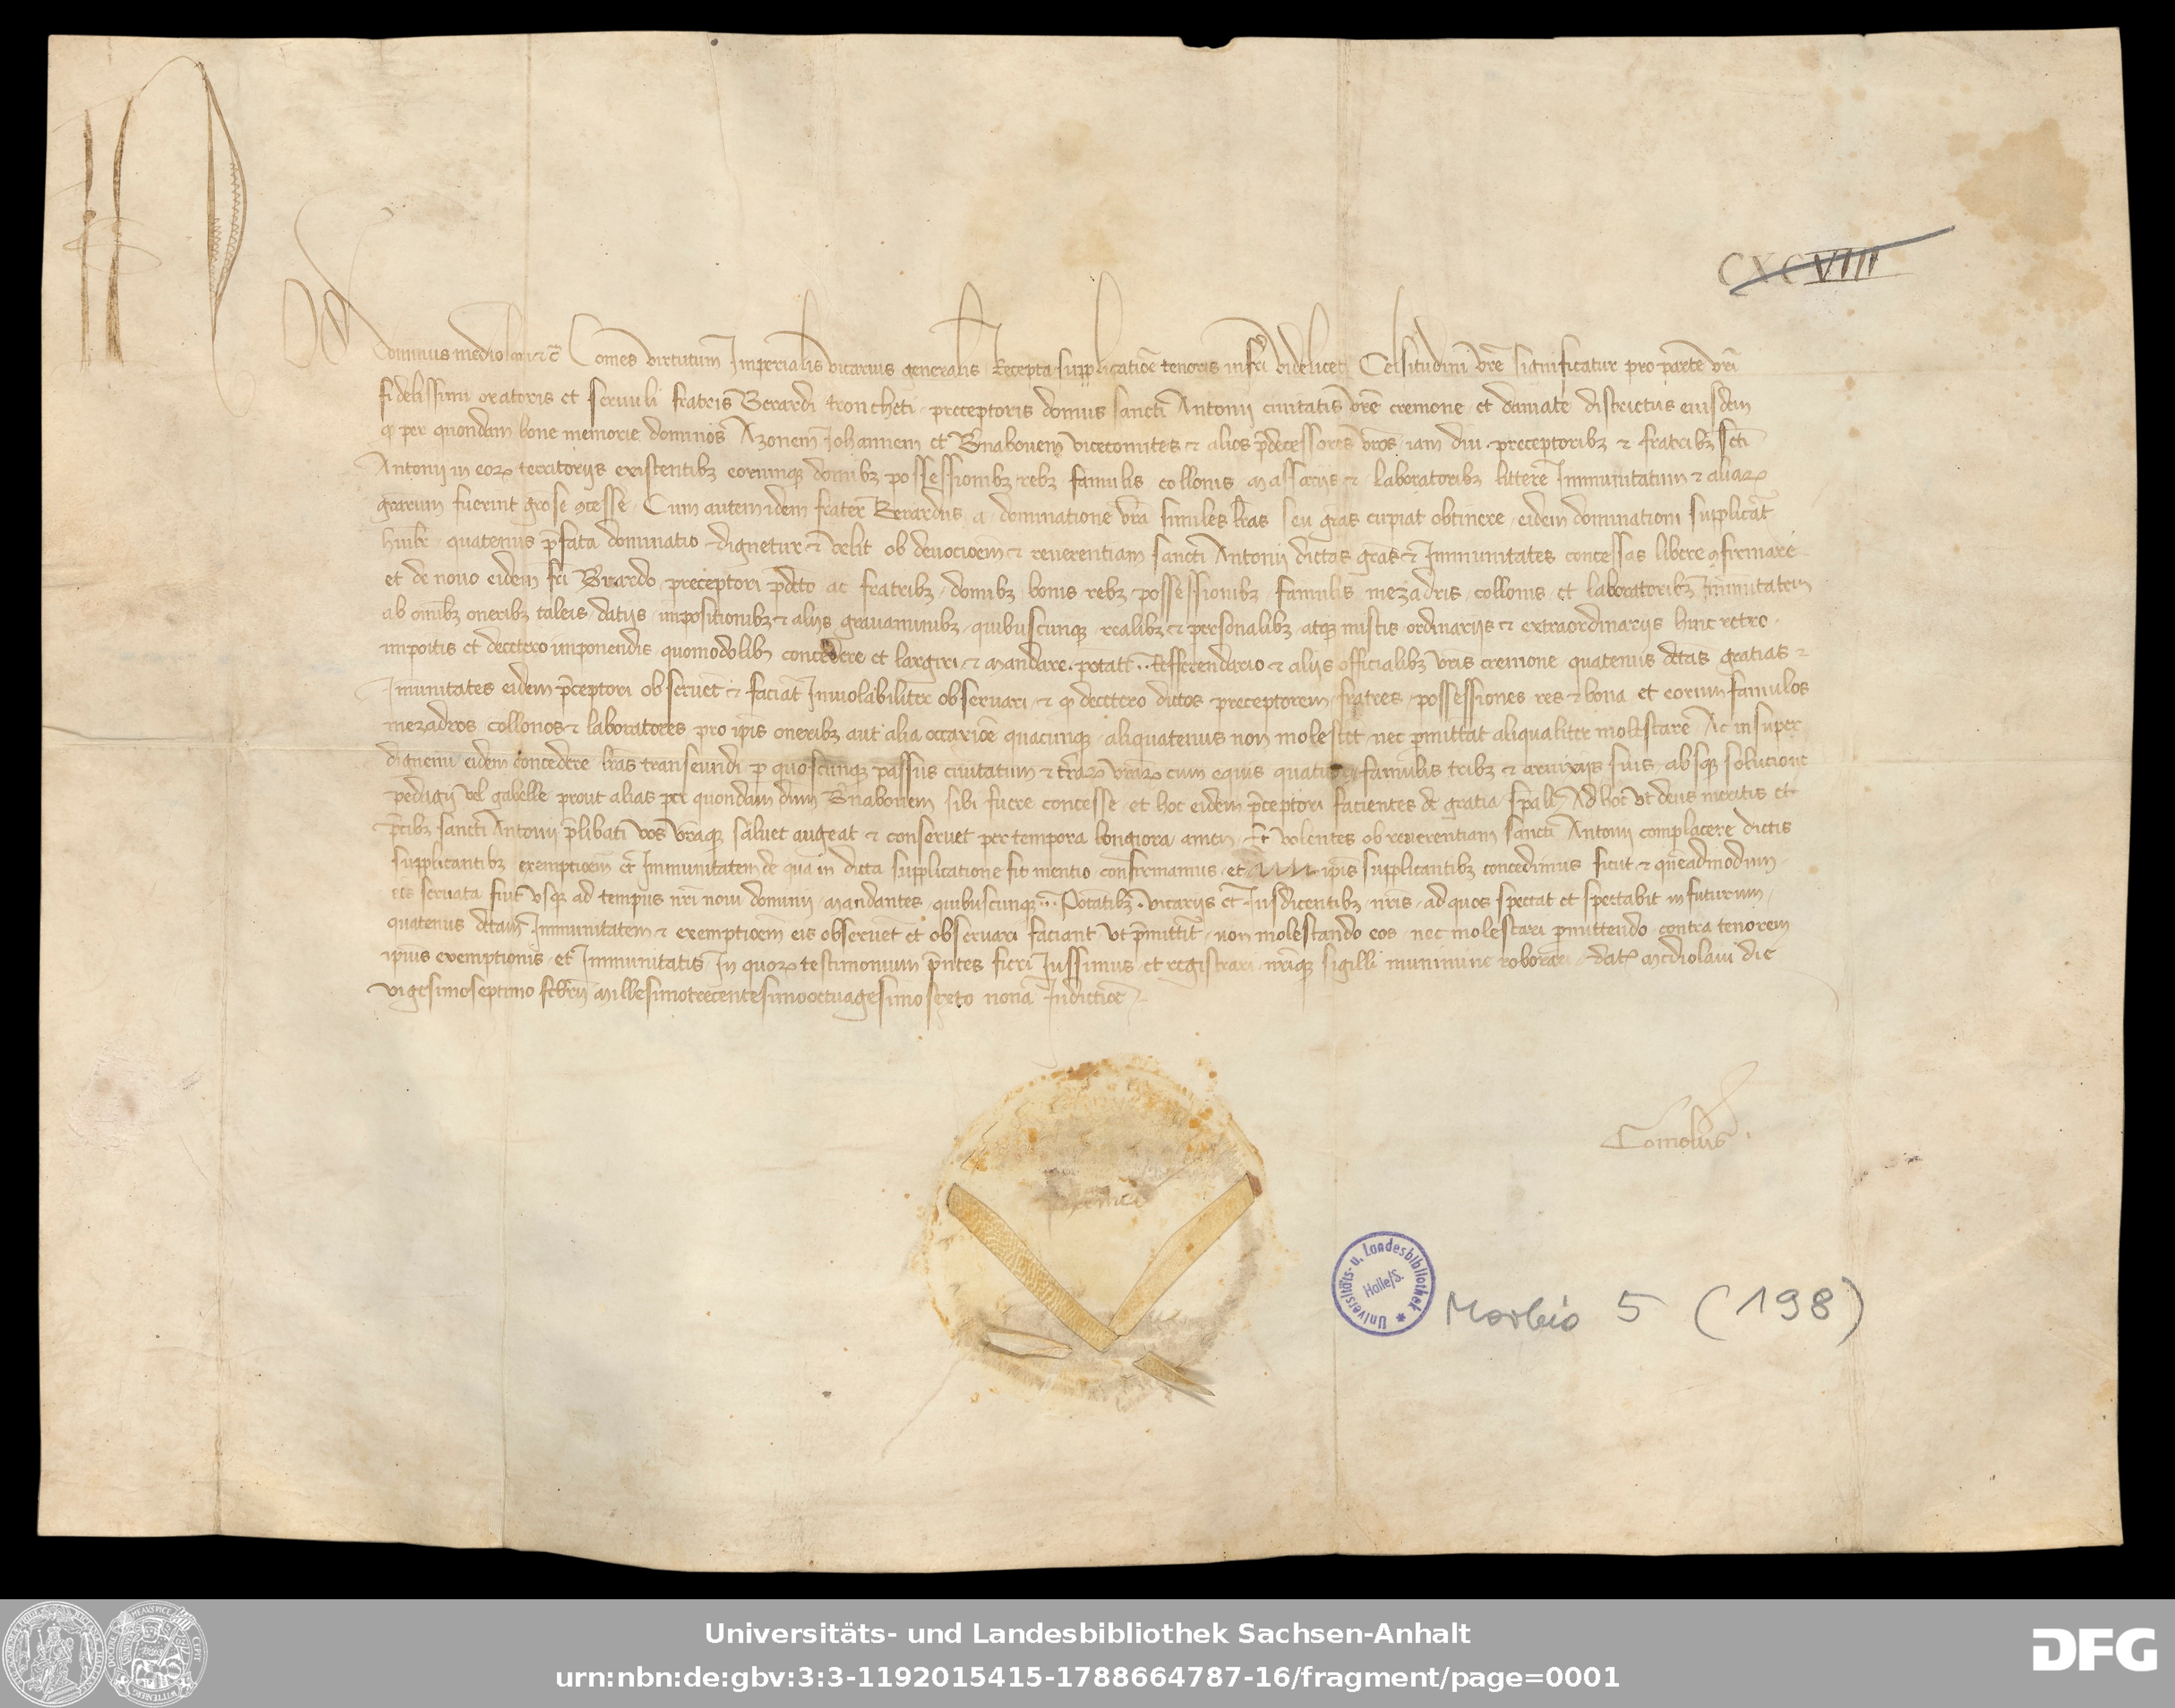 CXCVIII
Dominus mediolani etc̄ Comes virtutum Imperialis vicarius generalis Recepta supplicatiōe tenoris infrī videlicet Celsitudini vrē significatur pro parte vrī
fidelissimi oratoris et servuli fratris Berardi troncheti preceptoris domus sancti Antonii civitatis vrē cremone et districtus eiusdem
ꝙ per quondam bone memorie dominos Azonem Johannem et Bnabovem vicecomites et alios p̄decessores vros iam diu preceptoribꝫ et fratribꝫ scti
Antonii in eoꝝ territoriis existentibꝫ eorumqꝫ domibꝫ possessionibꝫ rebꝫ famulis collonis massariis et laboratoribꝫ littere Immunitatum et aliaꝝ
grarum fuerint grose ꝯcesse Cum autem idem frater Berardus a dominatione vrā similes lr̄as seu gr̄as cupiat obtinere eidem dominationi supplicat̄
hmilr quatenus p̄fata dominatio dignetur et velit ob devocioem et reverentiam sancti Antonii dictas gr̄as et Immunitates concessas libere ꝯfirmare
et de novo eidem frī Brardo preceptori p̄dcto ac fratribꝫ domibꝫ bonis rebꝫ possessionibꝫ famulis mezadris collonis et laboratoribꝫ Immunitatem
ab omībꝫ oneribꝫ taleis datiis impositionibꝫ et aliis gravaminibꝫ quibuscunqꝫ realibꝫ et personalibꝫ atqꝫ mistis ordinariis et extraordinariis hinc retro
impoitis et decetero imponendis quomodolibꝫ concedere et largiri et mandare potati .. Refferendario et aliis officialibꝫ vris cremone quatenus dctas gratias et
Imunitates eidem p̄ceptori observet et faciat Inviolabiliter observari et ꝙ decetero dictos preceptorem fratres possessiones res et bona et eorum famulos
mezadros collonos et laboratores pro ip̄is oneribꝫ aut alia occaxiōe quacunqꝫ aliquatenus non molestet nec p̱mittat aliqualiter molestare Ac insuper
dignemī eidem concedere lr̄as transeundi p̱ quoscunqꝫ passus civitatum et terraꝝ vraꝝ cum equis quatuor famulis tribꝫ et arnixiis suis absqꝫ solucione
pedagii vel gabelle prout alias per quondam dnm Bnabovem sibi fuere concesse et hoc eidem p̄ceptori facientes de gratia sp̄ali Ad hoc ut deus meritis et
p̄cibꝫ sancti Antonii p̄libati vos vraqꝫ salvet augeat et conservet per tempora longiora amen Et volentes ob reverentiam sancti Antonii complacere dictis
supplicantibꝫ exemptioem et Immunitatem de qua in dicta supplicatione fit mentio confirmamus et ip̄is supplicantibꝫ concedimus sicut et queadmodum
eis servata fuit usqꝫ ad tempus nrī novi dominii mandantes quibuscunqꝫ ... Potatibꝫ vicariis et Jusdicentibꝫ nris ad quos spectat et spectabit in futurum
quatenus dctam Immunitatem et exemptioem eis observet et observari faciant ut p̄mittit̄ non molestando eos nec molestari p̱mittendo contra tenorem
ip̄ius exemptionis et Immunitatis In quoꝝ testimonium p̄ntes fieri Jussimus et registrari nrīqꝫ sigilli munimine roborari Dat̄ mediolani die
vigesimoseptimo febrii millesimotrecentesimooctuagesimosexto nona Indictioe
Universitäts- u. Landesbibliothek
Halle/S.
Morbio 5 (198)
Universitäts- und Landesbibliothek Sachsen-Anhalt
urn:nbn:de:gbv:3:3-1192015415-1788664787-16/fragment/page=0001
DFG